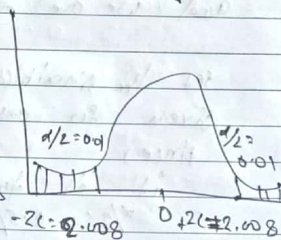 α/2 = 0.01
α/2 =
0.01
-2C = 2.008
0
+2C = 2.008